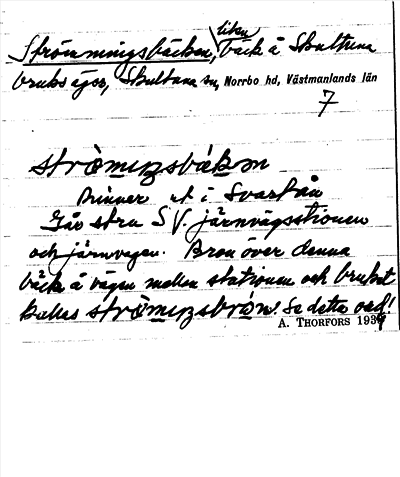 liten
Strömmingsbäcken, bäck å Skultuna
bruks ägor, Skultuna sn, Norrbo hd, Västmanlands län
7
strömıŋsbäkən
Rinner ut i Svartån
Går strax S V. järnvägsstationen
och järnvägen. Bron över denna
bäck å vägen mellan stationen och bruket
kallas strömıŋsbrön! Se detta ord!
A. THORFORS 1939